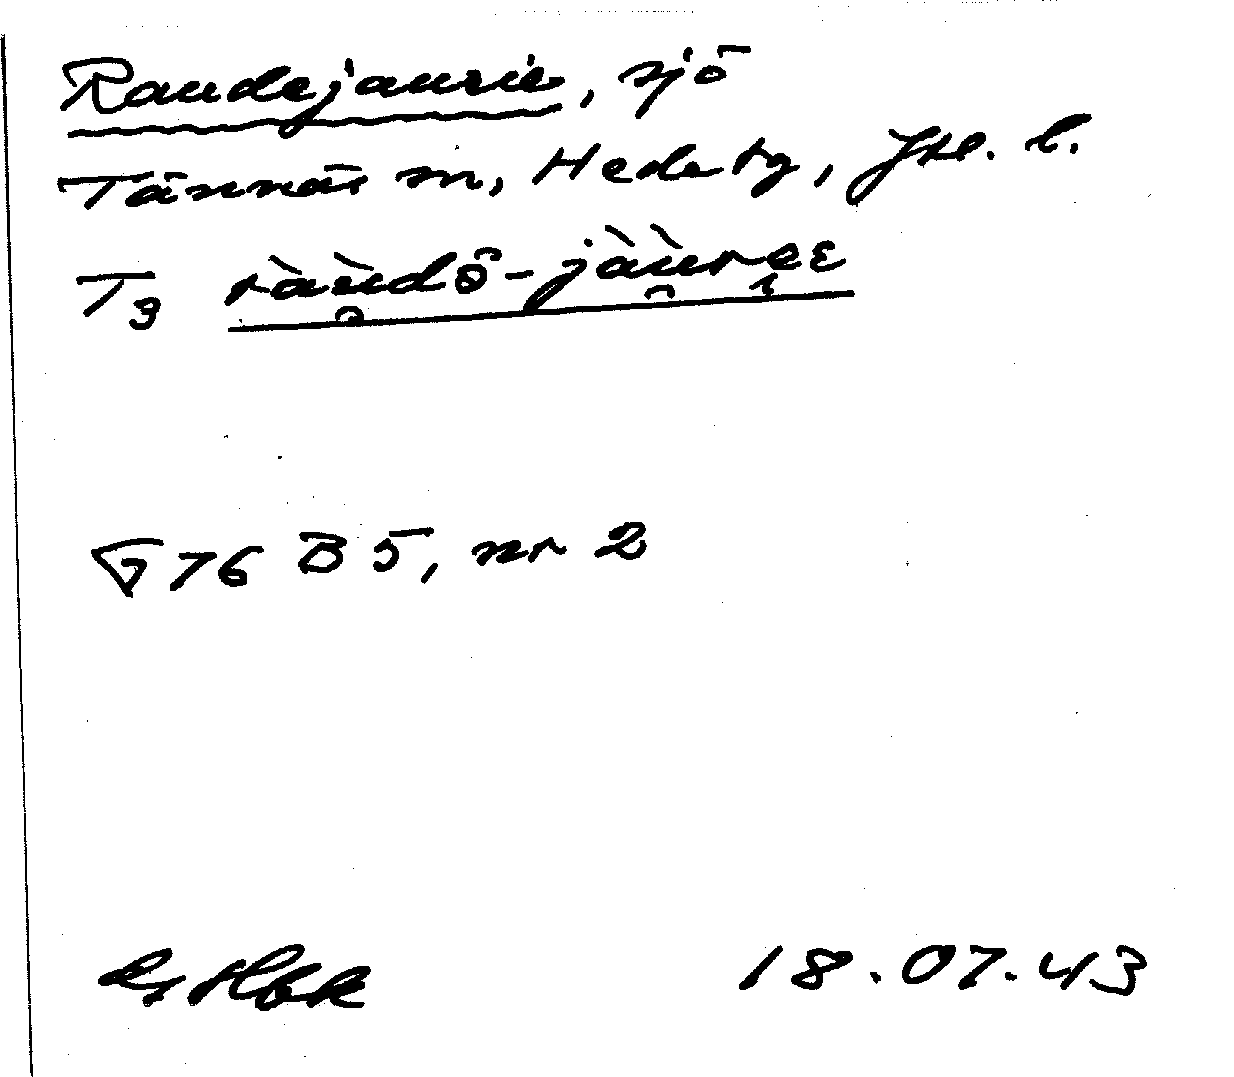 Raudejaurie, sjö
Tännäs sn, Hede tg, Jtl. l.
T3 ràu̯dô-jàu̯rẹɛ
G 76 B 5, nr 2
18.07.43